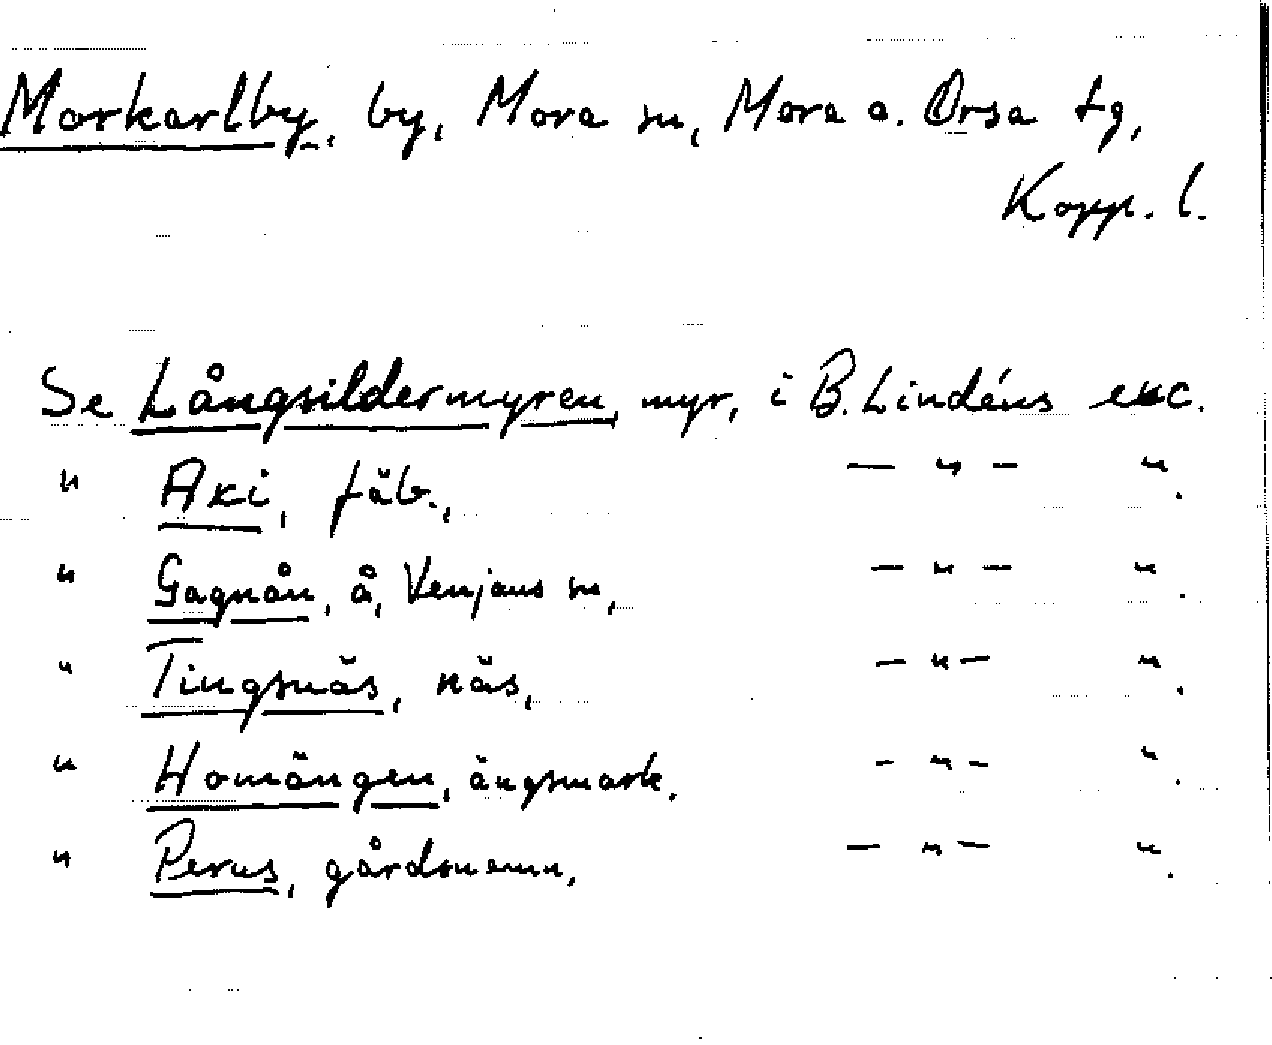 Morkarlby, by, Mora sn, Mora o. Orsa tg,
Kopp. l.
Se Långsildermyren, myr, i B. Lindéns exc.
" Axi, fäb., — " — ".
" Gagnån, å, Venjans sn, — " — ".
" Tingsnäs, näs, — " — ".
" Homängen, ängsmark. — " — ".
" Perus, gårdsnamn, — " — ".